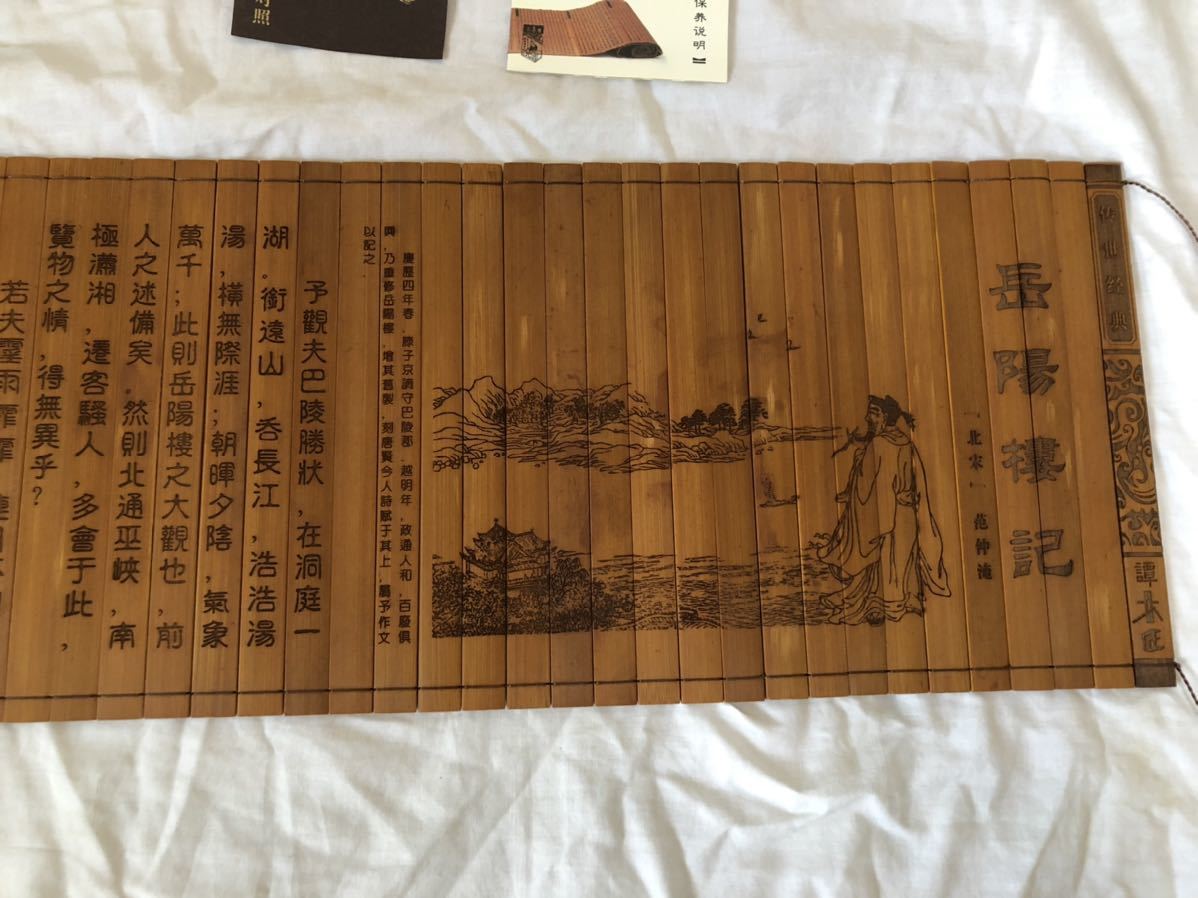 对照
保养说明】
传世经典
譚木匠
岳陽樓記
「北宋」范仲淹
慶歷四年春，滕子京謫守巴陵郡。越明年，政通人和，百廢俱
興，乃重修岳陽樓，增其舊製，刻唐賢今人詩賦于其上，屬予作文
以記之。
予觀夫巴陵勝狀，在洞庭一
湖。銜遠山，吞長江，浩浩湯
湯，橫無際涯；朝暉夕陰，氣象
萬千；此則岳陽樓之大觀也，前
人之述備矣。然則北通巫峽，南
極瀟湘，遷客騷人，多會于此，
覽物之情，得無異乎？
若夫霪雨霏霏